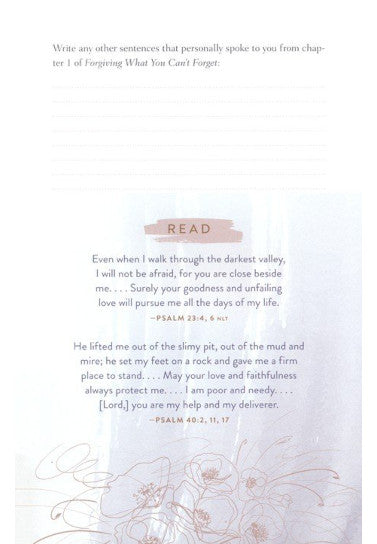 Write any other sentences that personally spoke to you from chap-
ter 1 of Forgiving What You Can't Forget:
READ
Even when I walk through the darkest valley,
I will not be afraid, for you are close beside
me. . . . Surely your goodness and unfailing
love will pursue me all the days of my life.
—PSALM 23:4, 6 NLT
He lifted me out of the slimy pit, out of the mud and
mire; he set my feet on a rock and gave me a firm
place to stand. . . . May your love and faithfulness
always protect me. . . . I am poor and needy. . . .
[Lord,] you are my help and my deliverer.
—PSALM 40:2, 11, 17